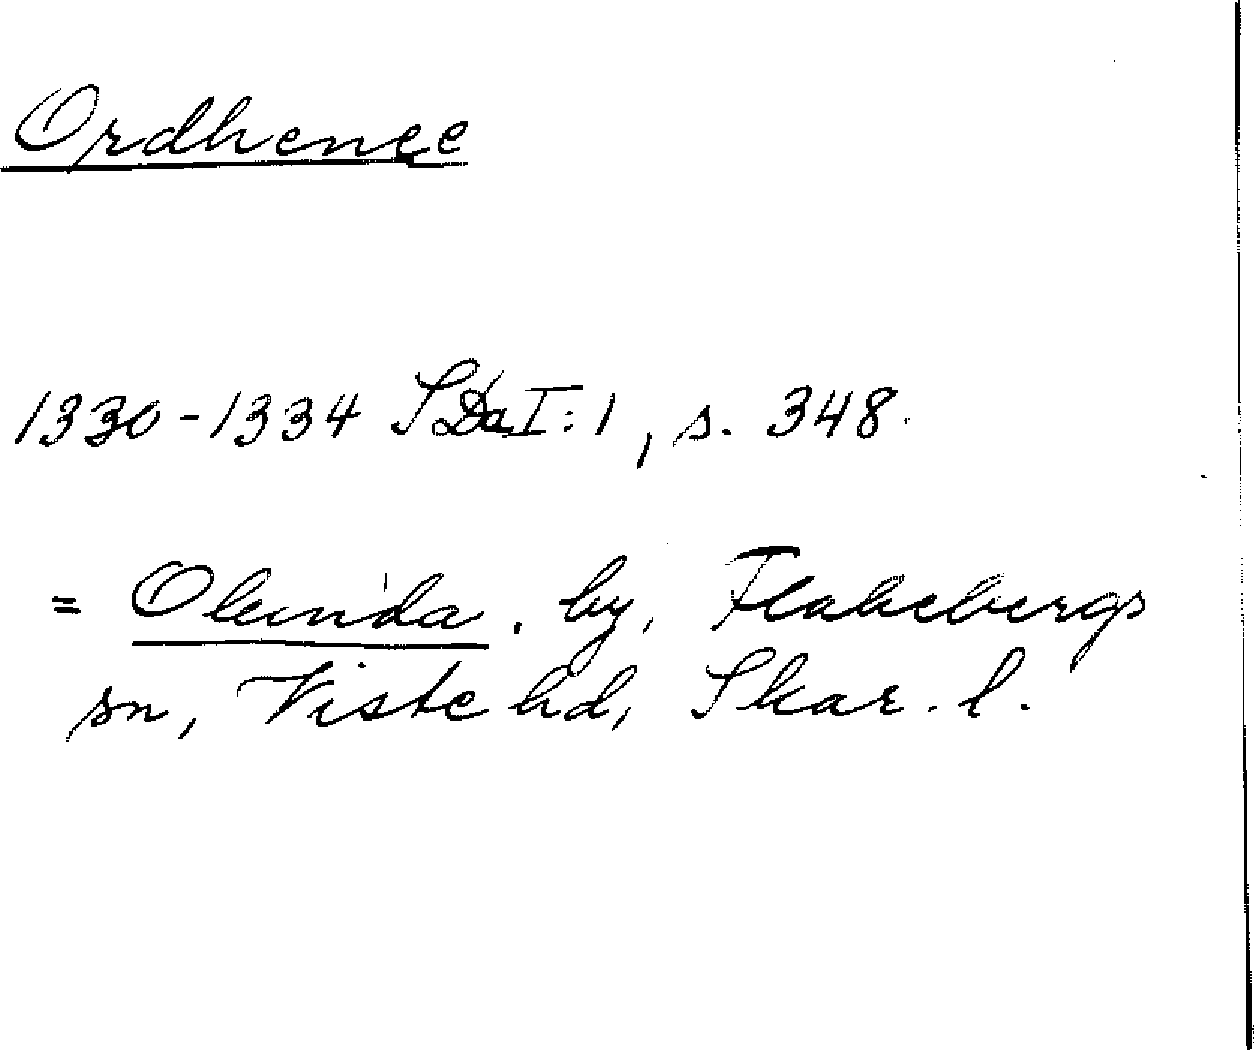 Ordhenee
1330-1334 SDaI:1, s. 348.
= Olunda. by, Flakebergs
sn, Viste hd, Skar. l.